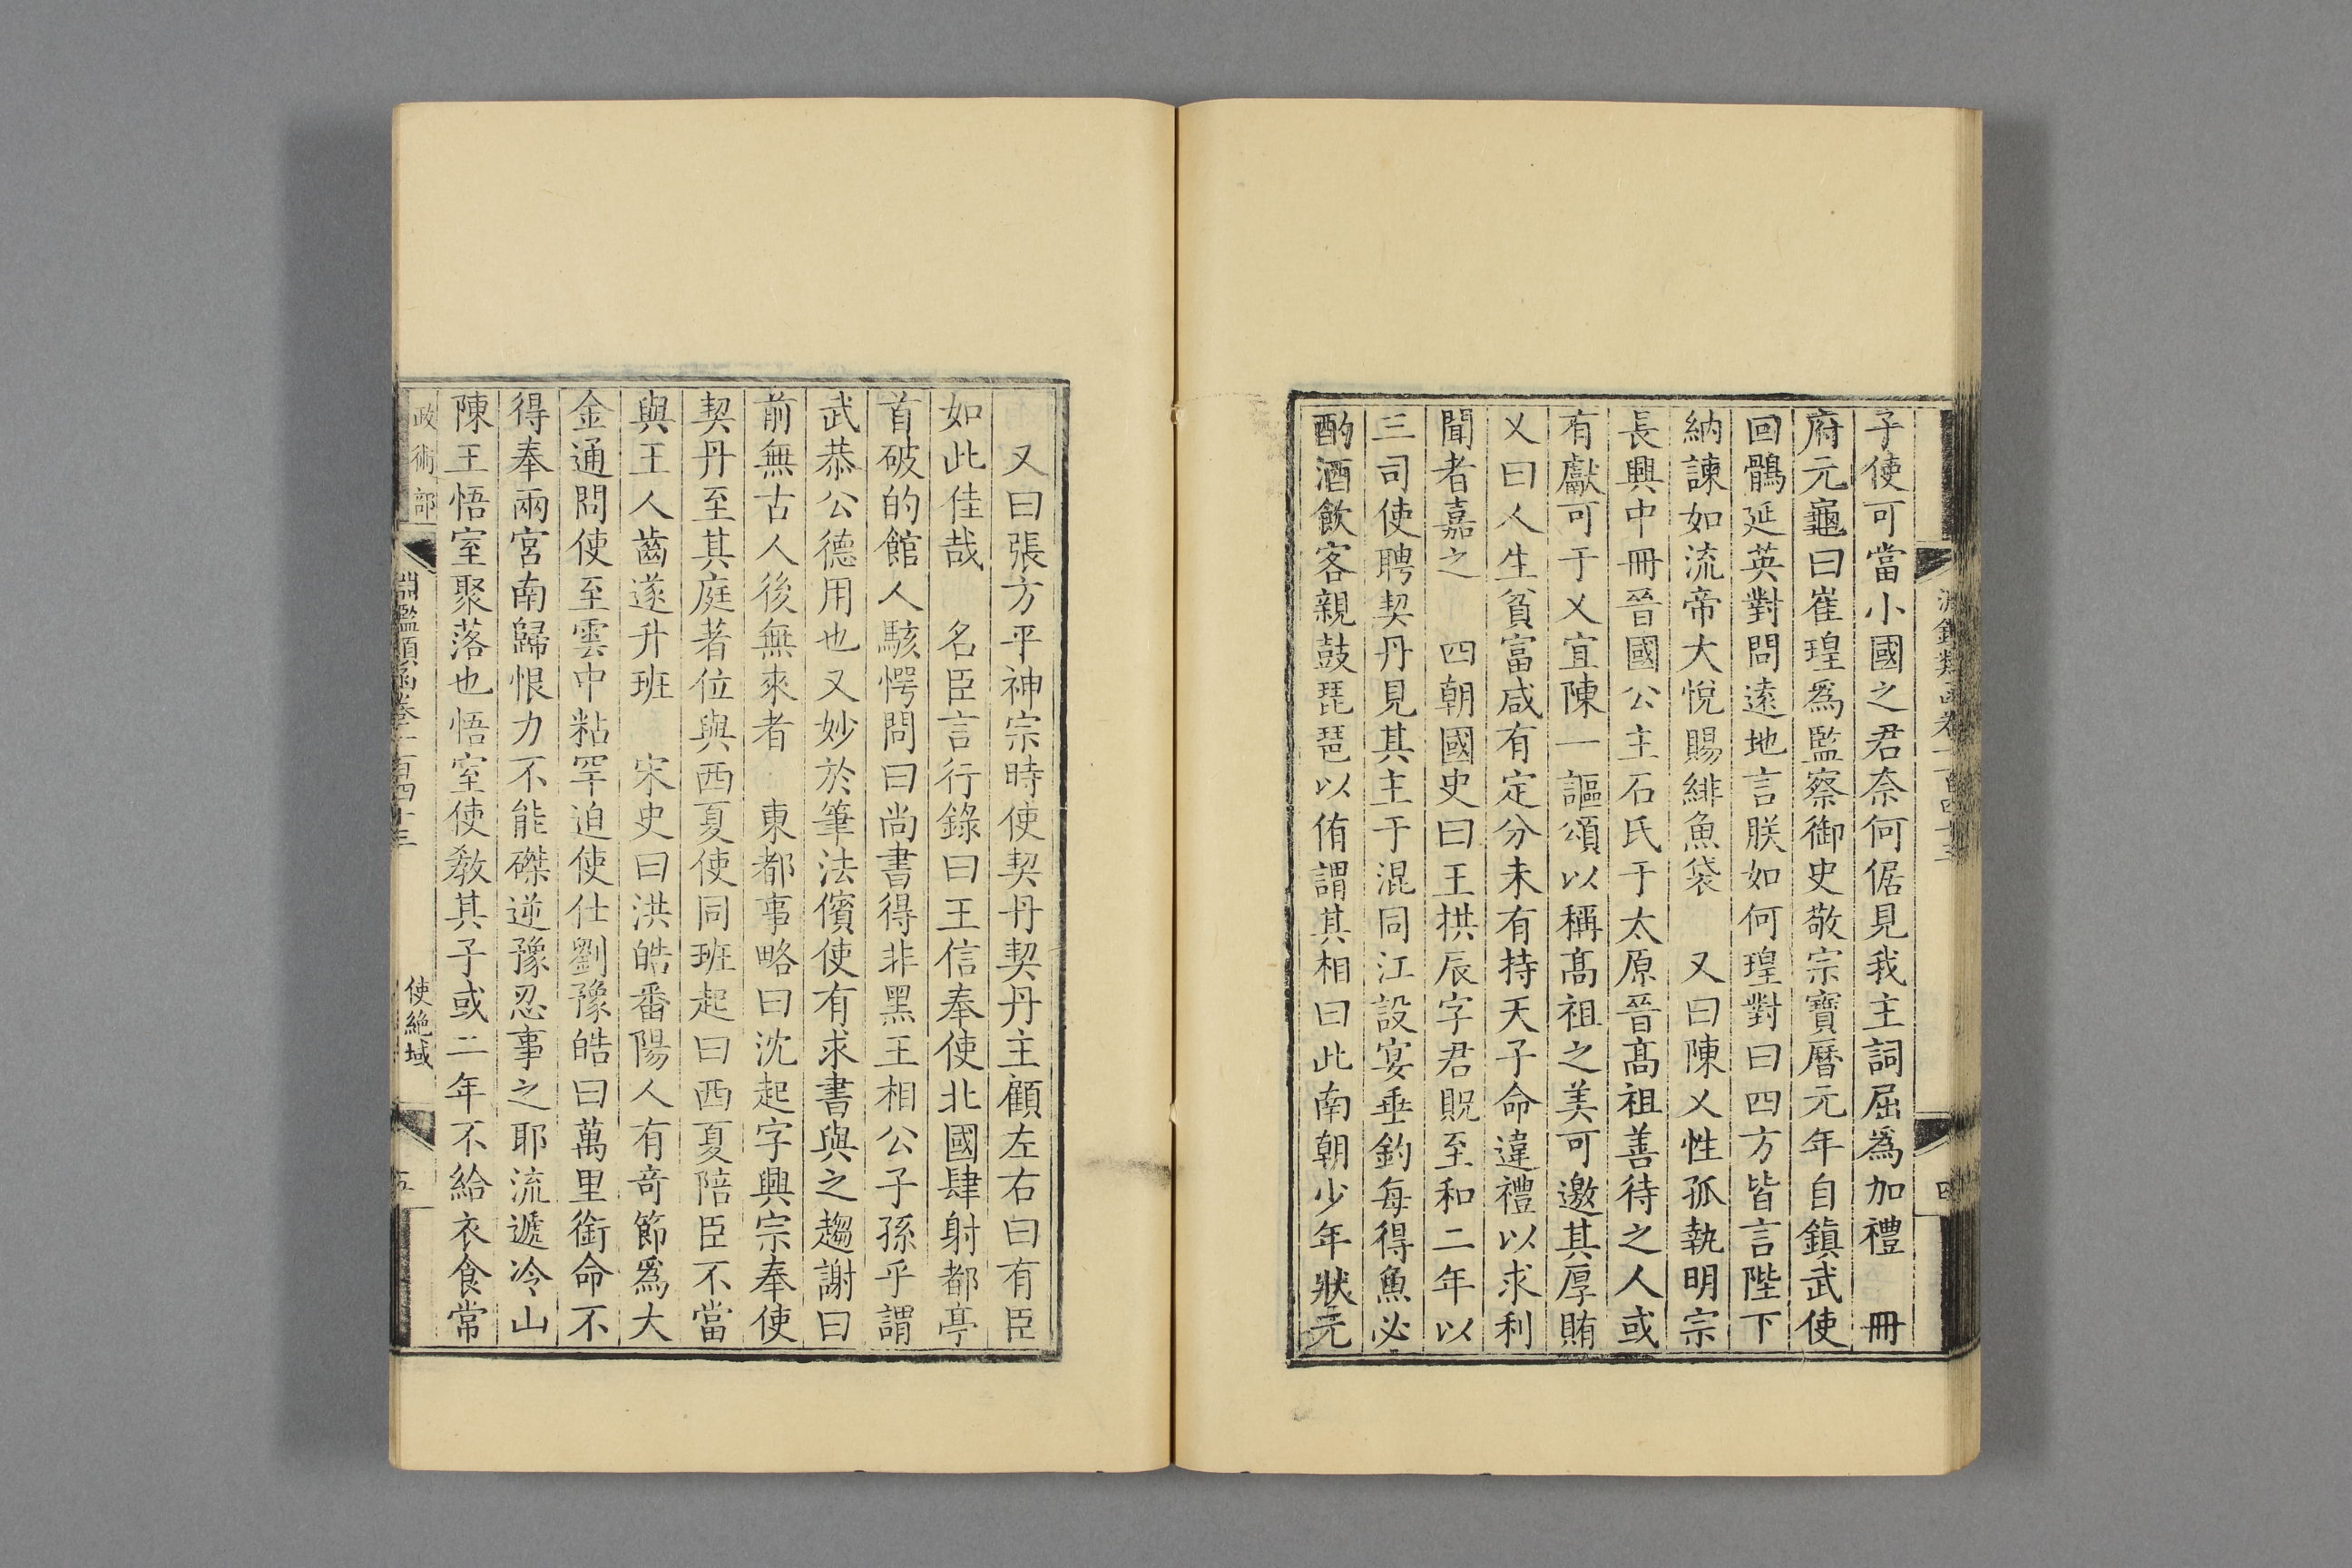 淵鑑類函卷一百四十三
四
子使可當小國之君奈何倨見我主詞屈爲加禮　冊
府元龜曰崔瑝爲監察御史敬宗寶曆元年自鎮武使
回鶻延英對問逺地言朕如何瑝對曰四方皆言陛下
納諫如流帝大悅賜緋魚袋　又曰陳乂性孤執明宗
長興中冊晉國公主石氏于太原晉髙祖善待之人或
有獻可于乂宜陳一謳頌以稱髙祖之美可邀其厚賄
乂曰人生貧富咸有定分未有持天子命違禮以求利
聞者嘉之　四朝國史曰王拱辰字君貺至和二年以
三司使聘契丹見其主于混同江設宴垂釣每得魚必
酌酒飲客親鼓琵琶以侑謂其相曰此南朝少年狀元
又曰張方平神宗時使契丹契丹主顧左右曰有臣
如此佳哉　名臣言行錄曰王信奉使北國肆射都亭
首破的館人駭愕問曰尚書得非黑王相公子孫乎謂
武恭公德用也又妙於筆法儐使有求書與之趨謝曰
前無古人後無來者　東都事略曰沈起字興宗奉使
契丹至其庭著位與西夏使同班起曰西夏陪臣不當
與王人齒遂升班　宋史曰洪皓番陽人有竒節爲大
金通問使至雲中粘罕迫使仕劉豫皓曰萬里銜命不
得奉兩宮南歸恨力不能磔逆豫忍事之耶流遞冷山
陳王悟室聚落也悟室使敎其子或二年不給衣食常
政術部
淵鑑類函卷一百四十三
使絶域
五